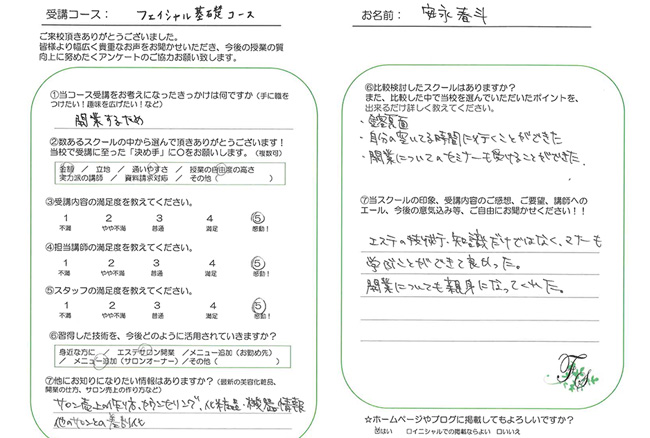 受講コース： フェイシャル基礎コース
ご来校頂きありがとうございました。
皆様より幅広く貴重なお声をお聞かせいただき、今後の授業の質
向上に努めたくアンケートのご協力お願い致します。
①当コース受講をお考えになったきっかけは何ですか（手に職を
つけたい！趣味を広げたい！など）
開業するため
②数あるスクールの中から選んで頂きありがとうございます！
当校で受講に至った「決め手」に○をお願いします。（複数可）
金額 ／ 立地 ／ 通いやすさ ／ 授業の自由度の高さ
実力派の講師 ／ 資料請求対応 ／ その他（ ）
③受講内容の満足度を教えてください。
1 2 3 4 5
不満 やや不満 普通 満足 感動！
④担当講師の満足度を教えてください。
1 2 3 4 5
不満 やや不満 普通 満足 感動！
⑤スタッフの満足度を教えてください。
1 2 3 4 5
不満 やや不満 普通 満足 感動！
⑥習得した技術を、今後どのように活用されていきますか？
身近な方に ／ エステサロン開業 ／メニュー追加（お勤め先）
／ メニュー追加（サロンオーナー）／その他（ ）
⑦他にお知りになりたい情報はありますか？（最新の美容化粧品、
開業の仕方、サロン売上の作り方など）
サロン売上の作り方、カウンセリング、化粧品・機器情報
他のサロンとの差別化
お名前： 安永春斗
⑥比較検討したスクールはありますか？
また、比較した中で当校を選んでいただいたポイントを、
出来るだけ詳しく教えてください。
・金額面
・自分の空いてる時間に行くことができた
・開業についてのセミナーも受けることができた.
⑦当スクールの印象、受講内容のご感想、ご要望、講師への
エール、今後の意気込み等、ご自由にお聞かせください！！
エステの技術、知識だけではなく、マナーも
学ぶことができて良かった。
開業についても親身になってくれた。
☆ホームページやブログに掲載してもよろしいですか？
はい □イニシャルでの掲載ならよい □いいえ